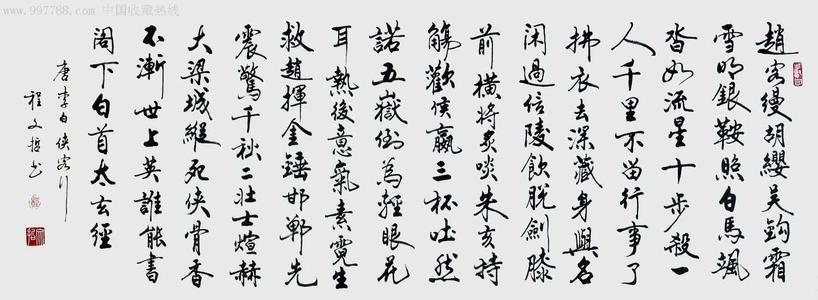 www.997788.com 中国收藏热线
趙客縵胡纓吳鉤霜
雪明銀鞍照白馬颯
沓如流星十步殺一
人千里不留行事了
拂衣去深藏身與名
閑過信陵飲脫劍膝
前橫將炙啖朱亥持
觴勸侯嬴三杯吐然
諾五嶽倒為輕眼花
耳熱後意氣素霓生
救趙揮金錘邯鄲先
震驚千秋二壯士煊赫
大梁城縱死俠骨香
不慚世上英誰能書
閣下白首太玄經
唐李白俠客行
程文哲书